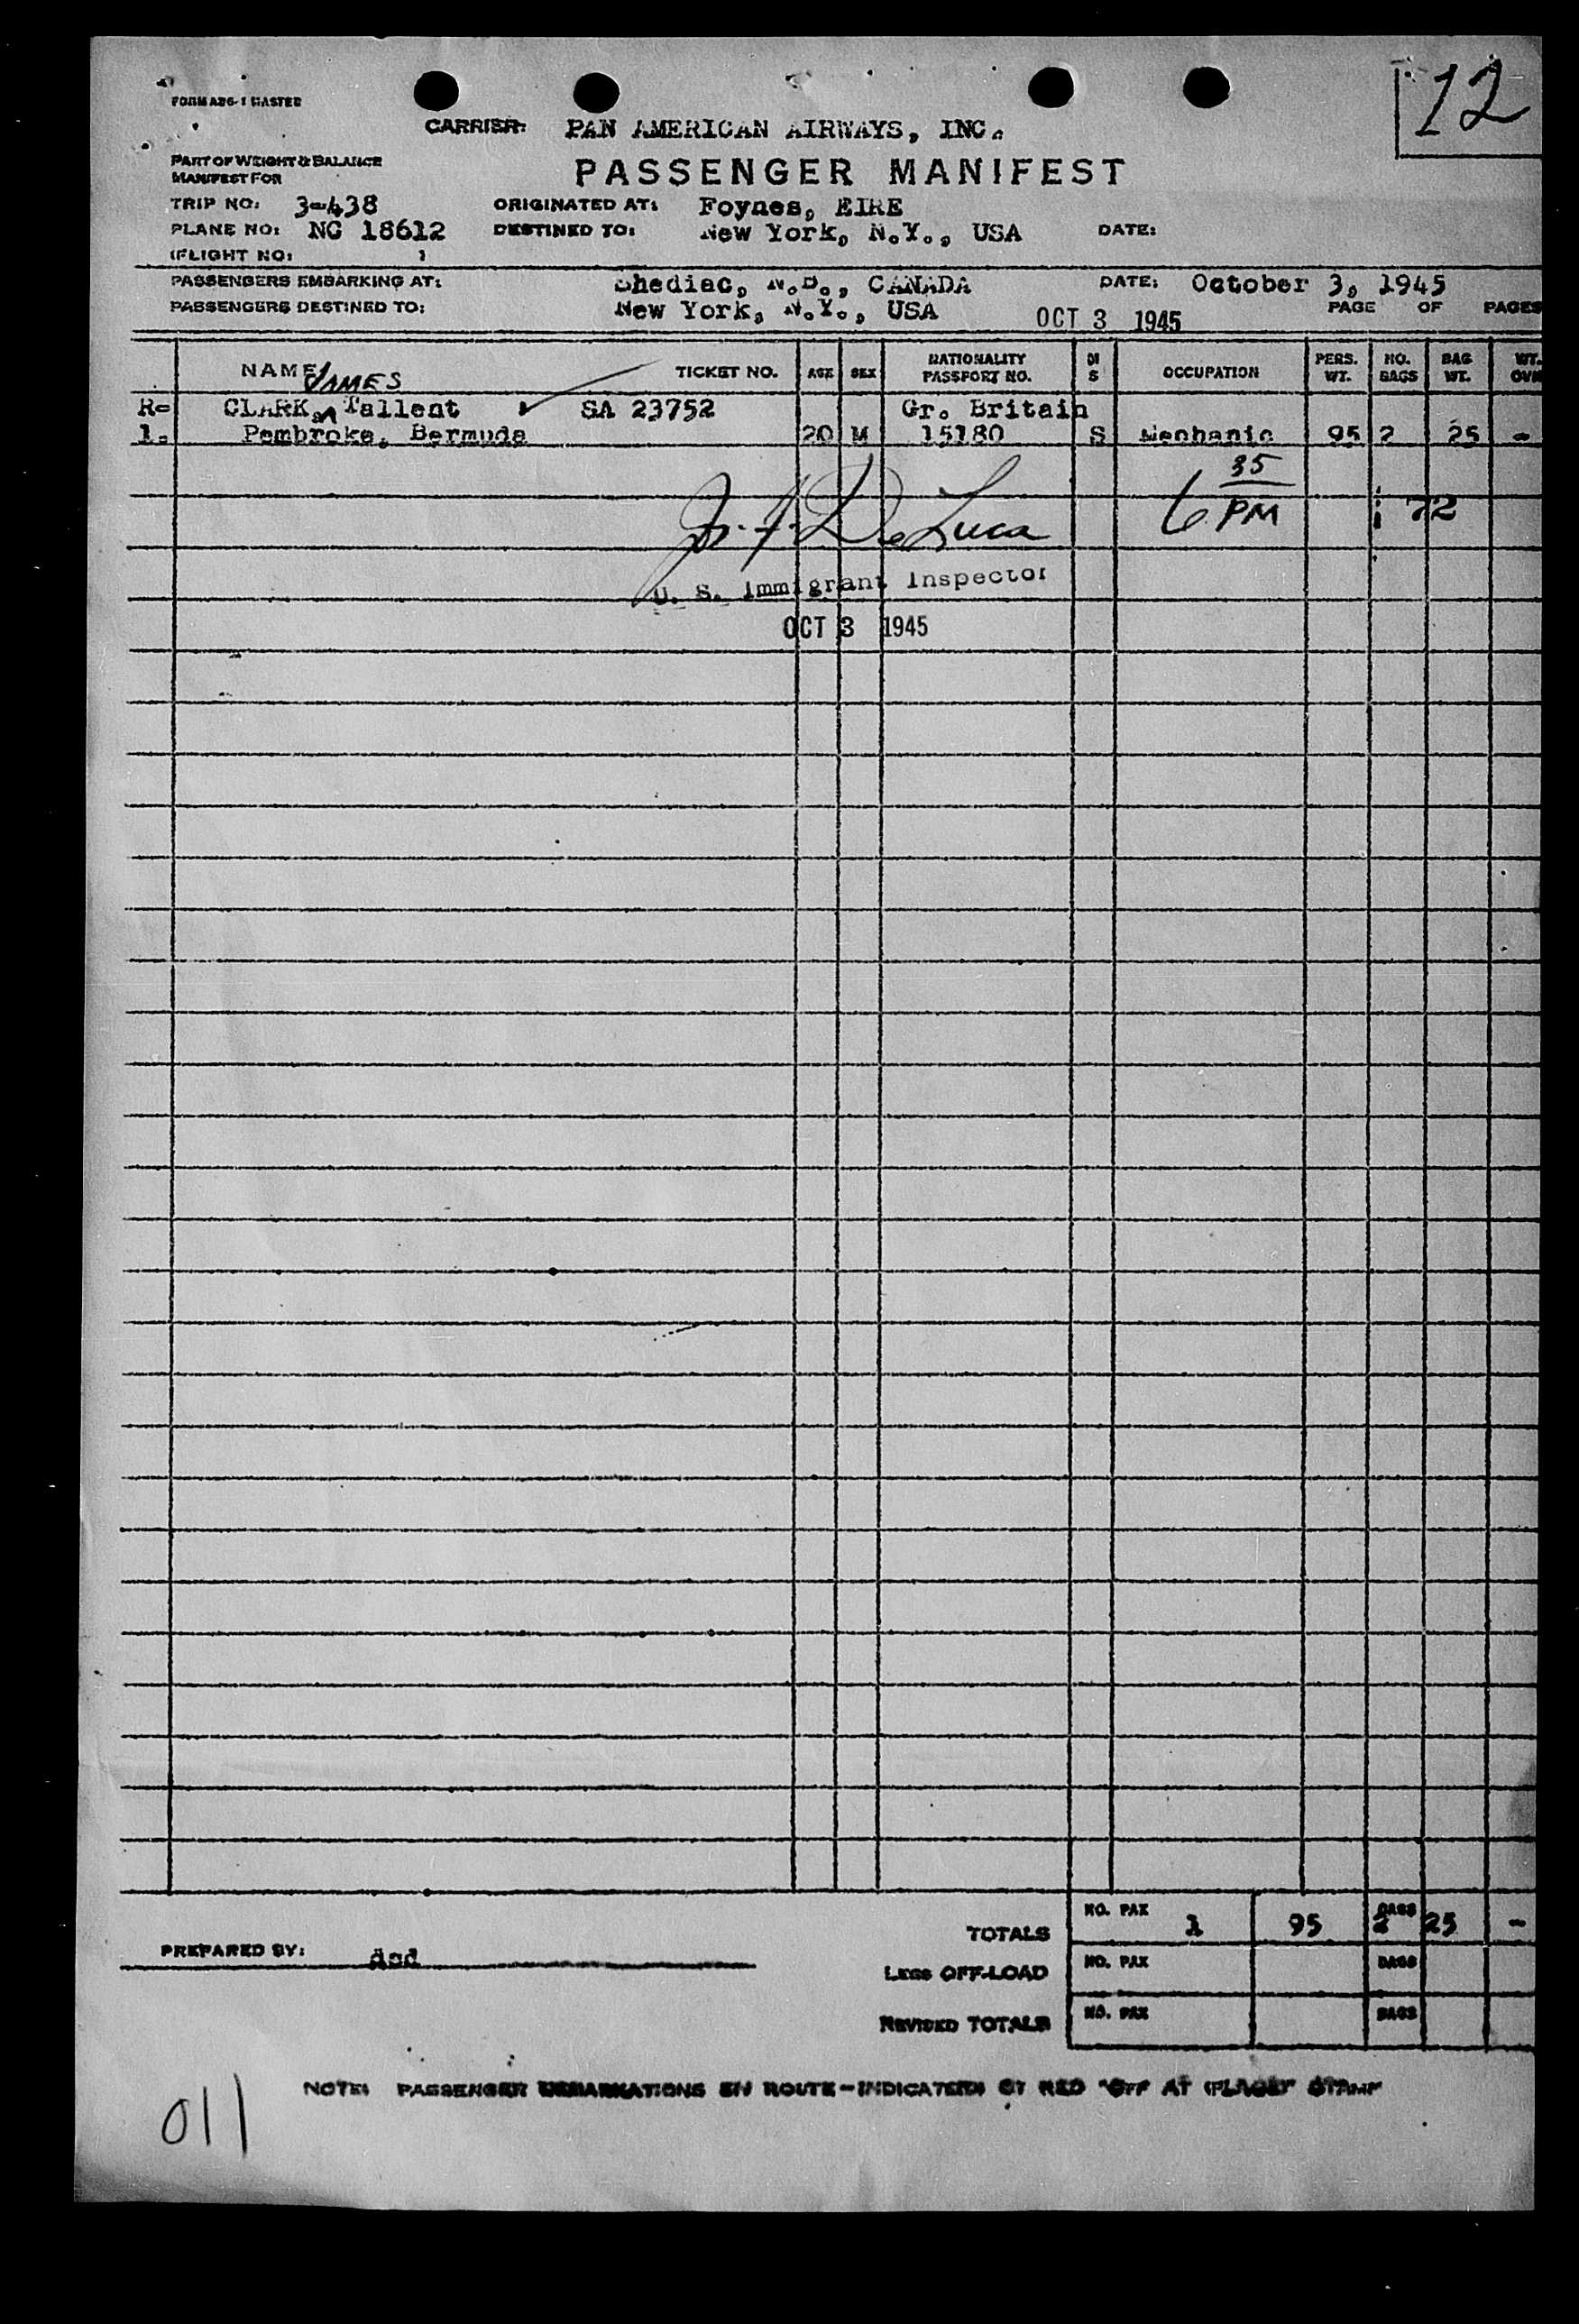 12
FORM A26-1 MASTER
CARRIER: PAN AMERICAN AIRWAYS, INC.
PART OF WEIGHT & BALANCE
MANIFEST FOR
PASSENGER MANIFEST
TRIP NO: 3-438 ORIGINATED AT: Foynes, EIRE
PLANE NO: NC 18612 DESTINED TO: New York, N.Y., USA DATE:
(FLIGHT NO: )
PASSENGERS EMBARKING AT: Shediac, N.B., CANADA DATE: October 3, 1945
PASSENGERS DESTINED TO: New York, N.Y., USA OCT 3 1945 PAGE OF PAGES
NAME TICKET NO. AGE SEX NATIONALITY PASSPORT NO. M S OCCUPATION PERS. WT. NO. BAGS BAG WT. WT. OVR
JAMES
R- CLARK, Tallent SA 23752 Gr. Britain
1. Pembroke, Bermuda 20 M 15180 S Mechanic 95 2 25 -
6 35 PM
72
U. S. Immigrant Inspector
OCT 3 1945
TOTALS NO. PAX 1 95 BAGS 2 25 -
PREPARED BY:
LESS OFF-LOAD NO. PAX BAGS
REVISED TOTALS NO. PAX BAGS
NOTE: PASSENGER DEBARKATIONS EN ROUTE-INDICATED BY RED "OFF AT (PLACE)" STAMP
011